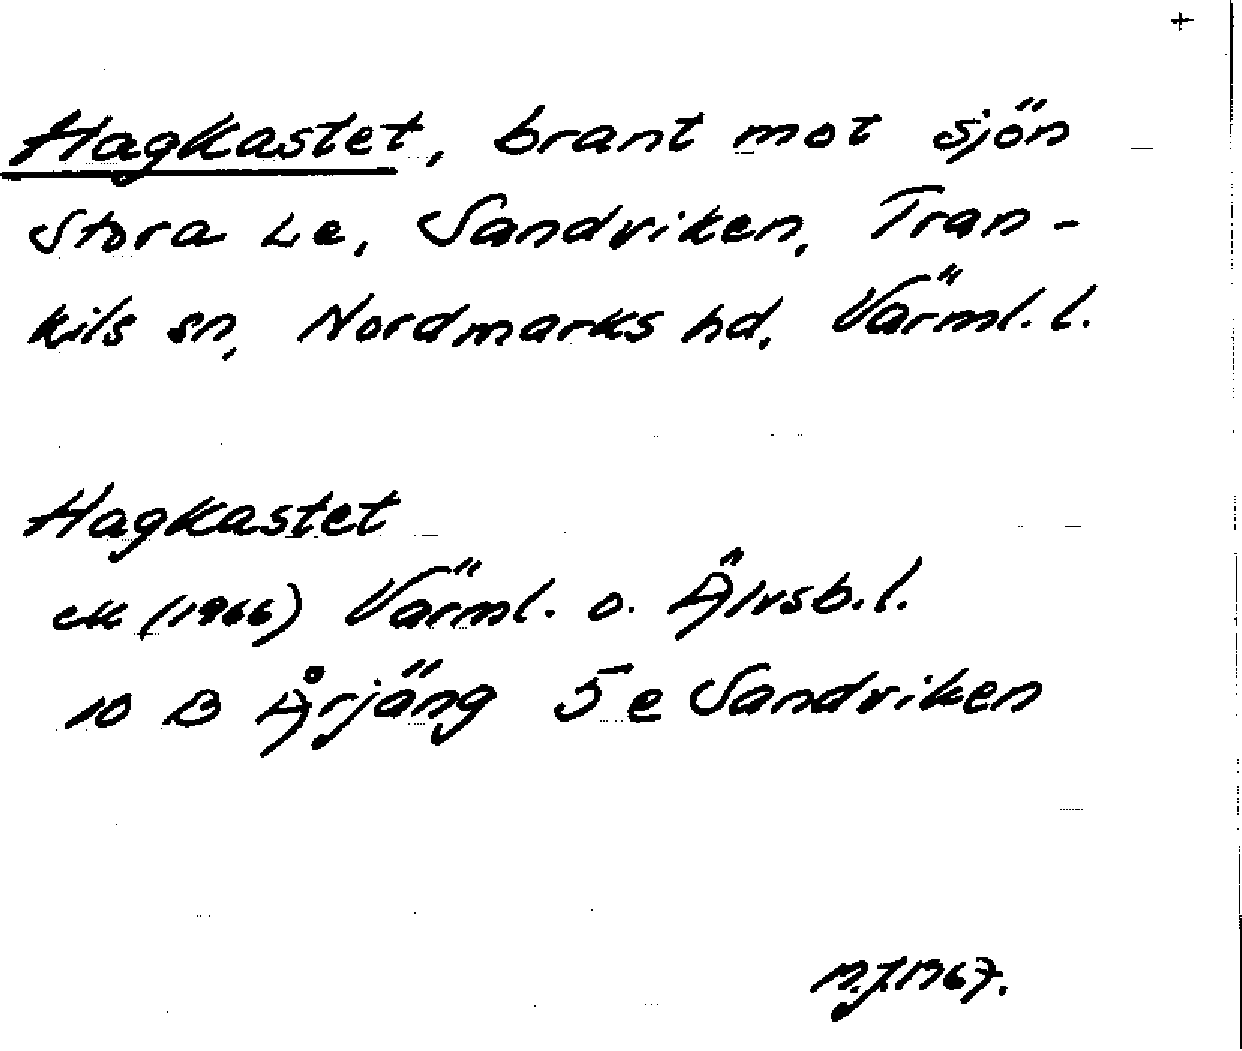 +
Hagkastet, brant mot sjön
Stora Le, Sandviken, Tran-
kils sn, Nordmarks hd, Värml. l.
Hagkastet
ek (1966) Värml. o. Älvsb. l.
10 B Årjäng 5 e Sandviken
M.J. 1967.